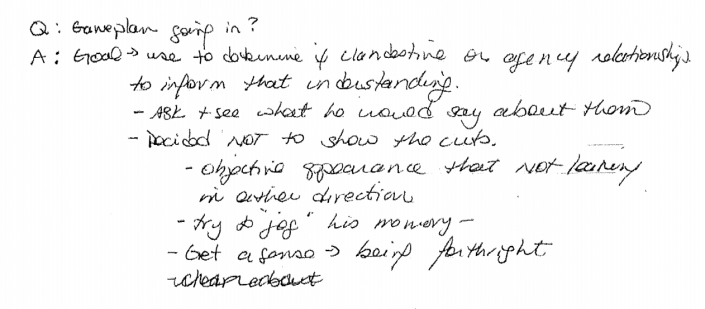 Q: Gameplan going in?
A: Goal → use to determine if clandestine or agency relationships
to inform that understanding.
- ASK + see what he would say about them
- Decided NOT to show the cuts.
- objective appearance that NOT leaning
in either direction
- try to "jog" his memory -
- Get a sense → being forthright